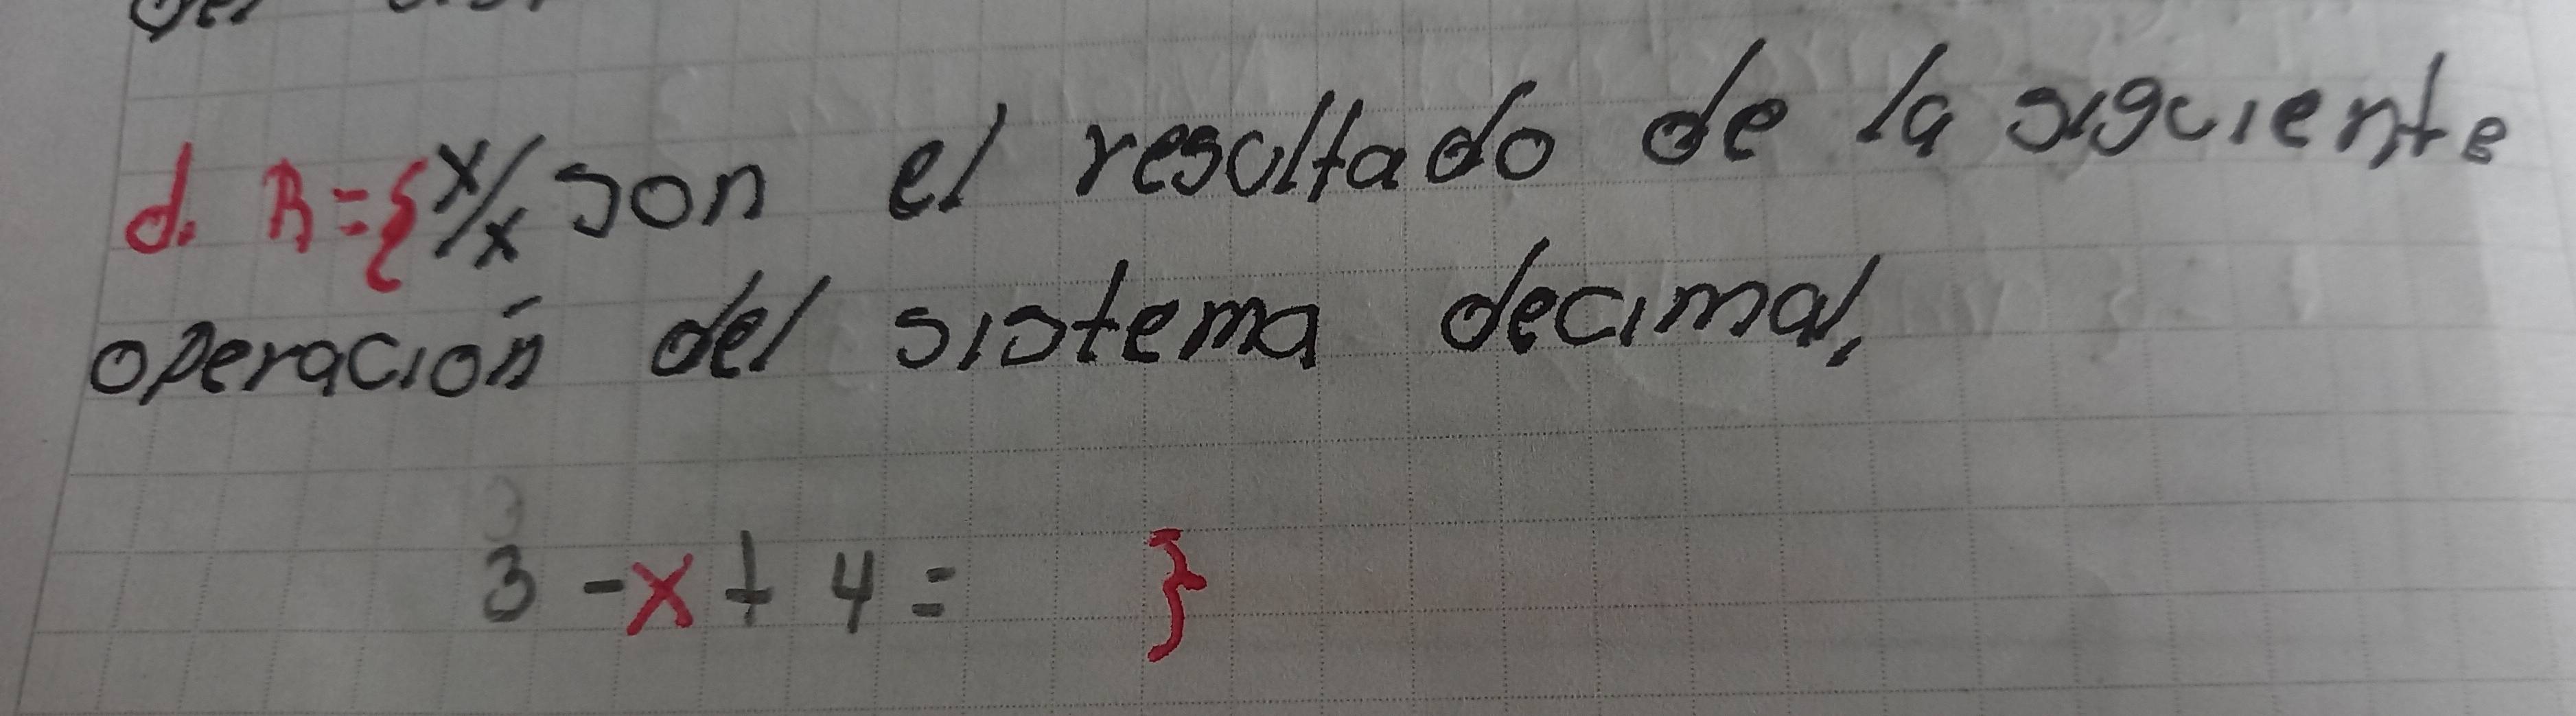 d. R={x/x son el resultado de la siguiente
operación del sistema decimal,
3 -x + 4 = }